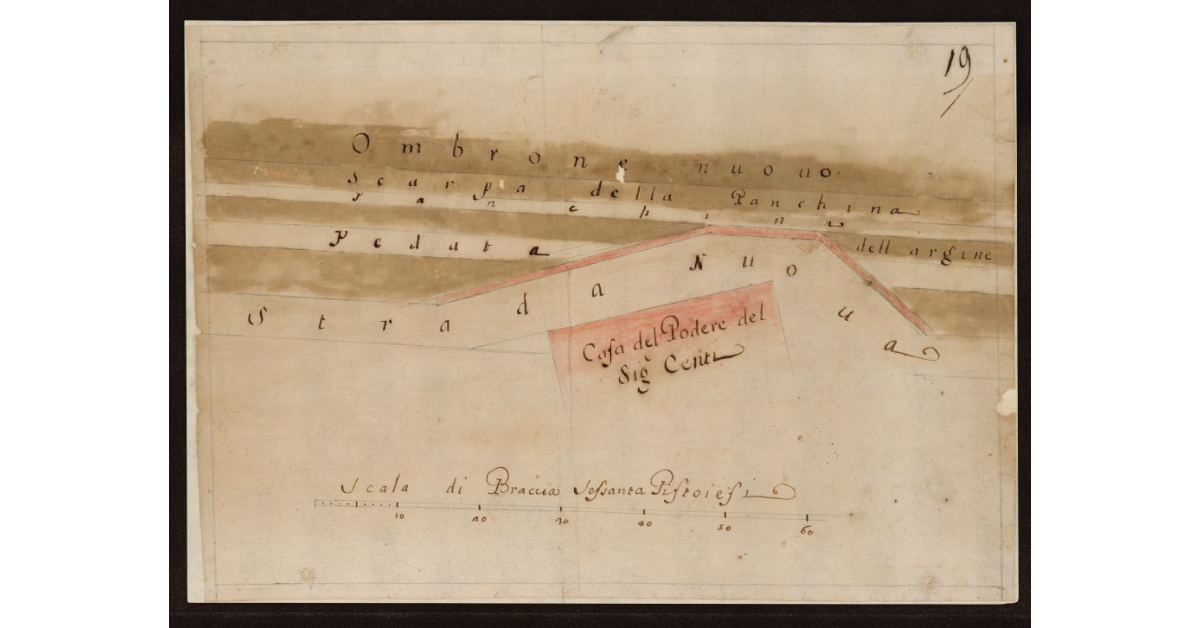 19
Ombrone nuouo.
Scarpa della Panchina
Panchina
Pedata dell argine
Strada Nuoua
Casa del Podere del
Sig.re Centi
Scala di Braccia Sessanta Pistoiesi
10 20 30 40 50 60